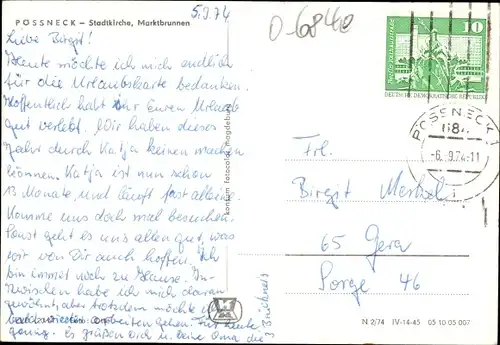 5.9.74
PÖSSNECK – Stadtkirche, Marktbrunnen
O-6840
Liebe Birgit!
Heute möchte ich mich endlich
für die Urlaubskarte bedanken.
Hoffentlich habt Ihr Euren Urlaub
gut verlebt. Wir haben dieses
Jahr durch Katja keinen machen
können. Katja ist nun schon
13 Monate und läuft fast allein.
Komme uns doch mal besuchen.
Sonst geht es uns allen gut, was
wir von Dir auch hoffen. Ich
bin immer noch zu Hause. In-
zwischen habe ich mich daran
gewöhnt, aber trotzdem möchte ich
bald wieder arbeiten gehen. Für heute
genug. Es grüßen Dich u. Deine Oma die
Brückners
konsum fotocolor magdeburg
10
DEUTSCHE DEMOKRATISCHE REPUBLIK
PÖSSNECK 1
684
-6.9.74-11
Frl.
Birgit
65 Gera
Sorge 46
N 2/74 IV-14-45 05 10 05 007